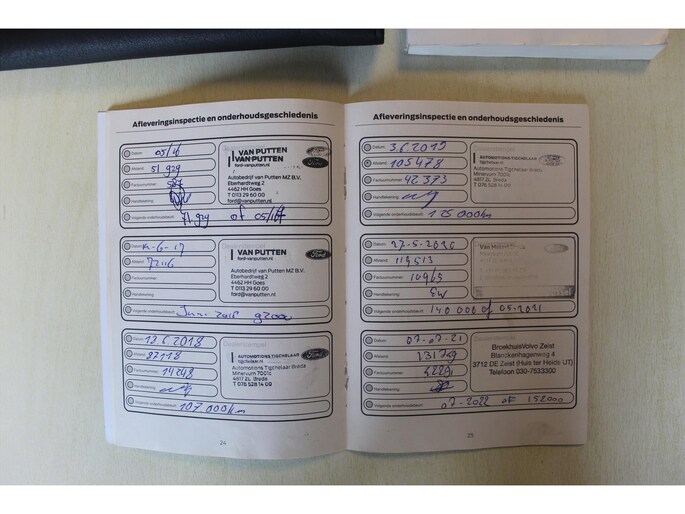 Afleveringsinspectie en onderhoudsgeschiedenis
Datum 05/16
Afstand 51 929
Factuurnummer
Handtekening
Volgende onderhoudsbeurt 71 929 of 05/17
VAN PUTTEN
VAN PUTTEN
ford-vanputten.nl
Autobedrijf van Putten MZ B.V.
Eberhardtweg 2
4462 HH Goes
T 0113 29 60 00
ford@vanputten.nl
Ford
Datum 12-6-17
Afstand 72116
Factuurnummer
Handtekening
Volgende onderhoudsbeurt Juni 2018 92000
VAN PUTTEN
ford-vanputten.nl
Autobedrijf van Putten MZ B.V.
Eberhardtweg 2
4462 HH Goes
T 0113 29 60 00
ford@vanputten.nl
Ford
Datum 12 6 2018
Afstand 87118
Factuurnummer 14248
Handtekening
Volgende onderhoudsbeurt 107 000 km
AUTOMOTIONS TIGCHELAAR
tigchelaar.nl
Automotions Tigchelaar Breda
Minervum 7001c
4817 ZL Breda
T 076 528 14 00
Ford
24
Afleveringsinspectie en onderhoudsgeschiedenis
Datum 3.6 2019
Afstand 105478
Factuurnummer 42373
Handtekening
Volgende onderhoudsbeurt 125 000 km
AUTOMOTIONS TIGCHELAAR
tigchelaar.nl
Automotions Tigchelaar Breda
Minervum 7001c
4817 ZL Breda
T 076 528 14 00
Datum 27-5-2020
Afstand 114513
Factuurnummer 10965
Handtekening
Volgende onderhoudsbeurt 140 000 of 05-2021
Van
Datum 07-07-21
Afstand
Factuurnummer
Handtekening
Volgende onderhoudsbeurt 07-2022 of 152000
BroekhuisVolvo Zeist
Blanckenhagenweg 4
3712 DE Zeist (Huis ter Heide UT)
Telefoon 030-7533300
25